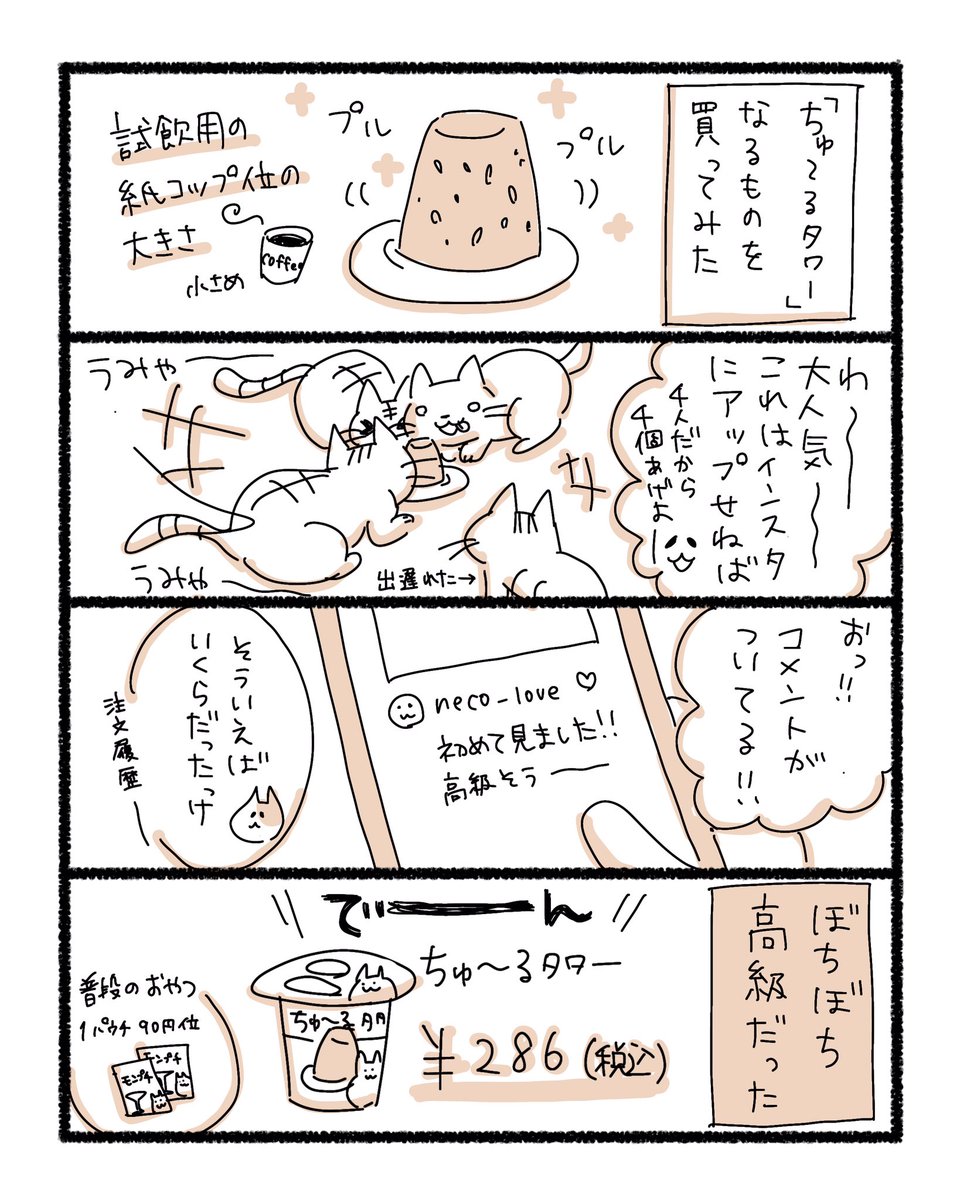 「ちゅ〜るタワー」
なるものを
買ってみた
プル
プル
試飲用の
紙コップ位の
大きさ
coffee
小さめ
わ〜〜
大人気〜〜
これはインスタ
にアップせねば
4人だから
4個あげよー
うみゃー
うみゃー
出遅れた→
おっ!!
コメントが
ついてる!!
neco_love ♡
初めて見ました!!
高級そうー
そういえば
いくらだったっけ
注文履歴ー
ぼちぼち
高級だった
でーーん
ちゅ〜るタワー
ちゅ〜るタワー
¥286(税込)
普段のおやつ
1パウチ90円位
モンプチ
モンプチ